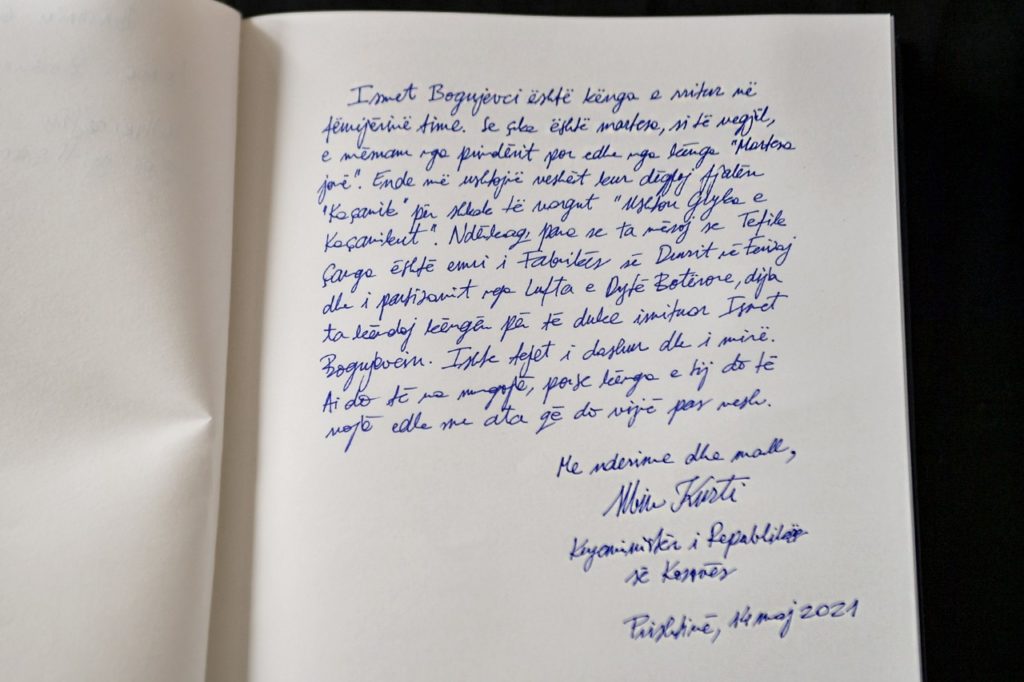 Ismet Bogujevci është kënga e rritur në
fëmijërinë time. Se çka është martesa, si të vegjël,
e mësuam nga prindërit por edhe nga kënga "Martesa
jonë". Ende më ushtojnë veshët kur dëgjoj fjalën
"Kaçanik" për shkak të vargut "Ushtoi Gryka e
Kaçanikut". Ndërkaq, para se ta mësoj se Tefik
Çanga është emri i Fabrikës së Drurit në Ferizaj
dhe i partizanit nga Lufta e Dytë Botërore, dija
ta këndoj këngën për të duke imituar Ismet
Bogujevcin. Ishte tejet i dashur dhe i mirë.
Ai do të na mungojë, porse kënga e tij do të
rrojë edhe me ata që do vijnë pas nesh.
Me nderime dhe mall,
Albin Kurti
Kryeministër i Republikës
së Kosovës
Prishtinë, 14 maj 2021